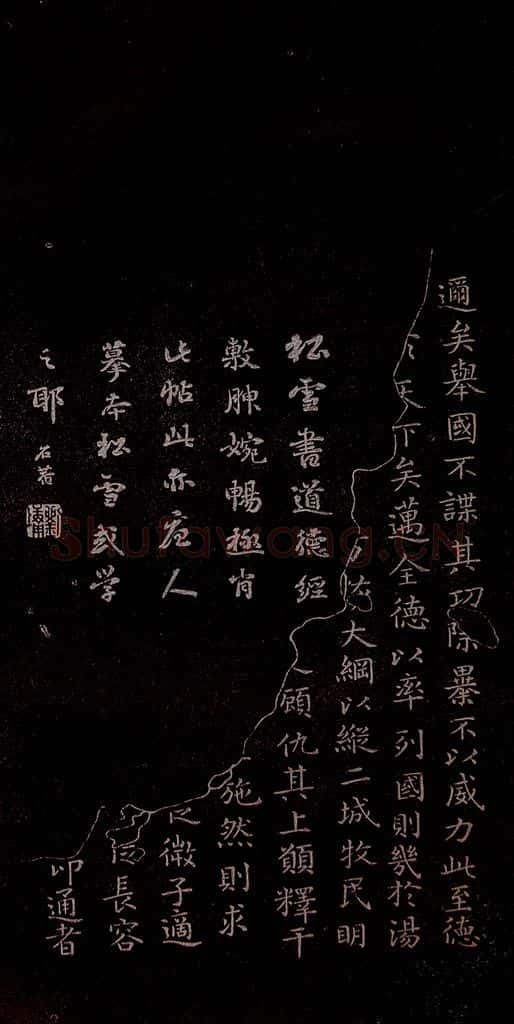 邇矣舉國不謀其功除暴不以威力此至德
天下矣邁全德以率列國則幾於湯
大綱以縱二城牧民明
顧仇其上願釋干
施然則求
微子適
長容
通者
松雪書道德經
敷腴婉暢極肖
此帖此亦唐人
摹本松雪或學
之耶 石菴
劉墉
Shufawang.CN